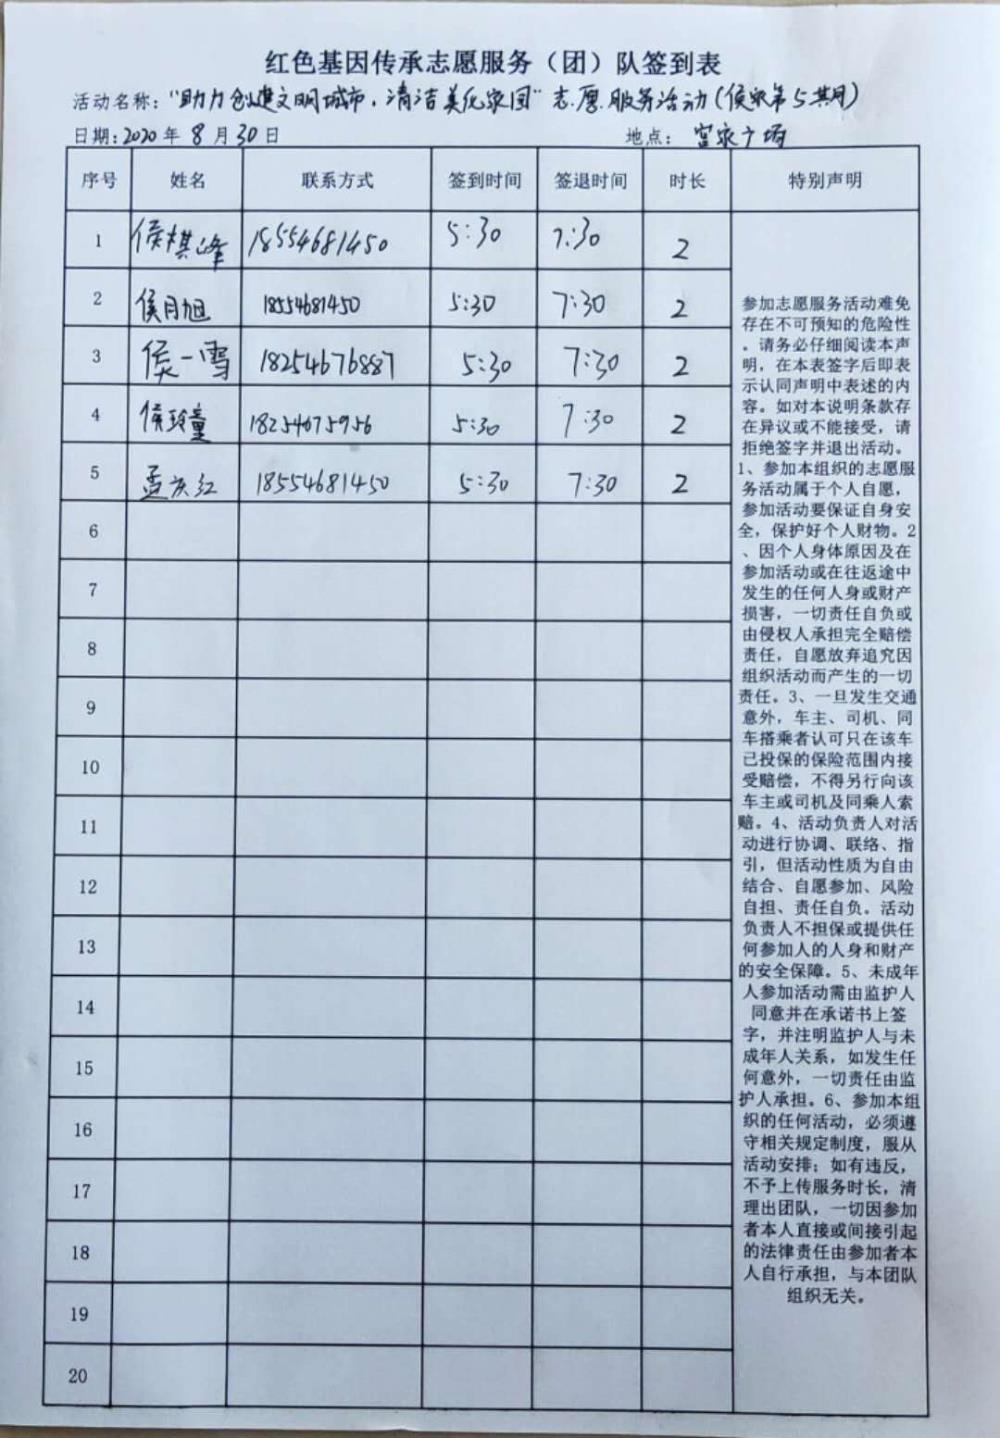 红色基因传承志愿服务（团）队签到表
活动名称："助力创建文明城市，清洁美化家园"志愿服务活动(侯家第5期)
日期:2020年8月30日 地点：宫家广场
序号 姓名 联系方式 签到时间 签退时间 时长 特别声明
1 侯棋峰 18554681450 5:30 7:30 2
2 侯月旭 18554681450 5:30 7:30 2
3 侯一雪 18254676887 5:30 7:30 2
4 侯玲童 18254675956 5:30 7:30 2
5 孟庆红 18554681450 5:30 7:30 2
6
7
8
9
10
11
12
13
14
15
16
17
18
19
20
参加志愿服务活动难免
存在不可预知的危险性
。请务必仔细阅读本声
明，在本表签字后即表
示认同声明中表述的内
容。如对本说明条款存
在异议或不能接受，请
拒绝签字并退出活动。
1、参加本组织的志愿服
务活动属于个人自愿，
参加活动要保证自身安
全，保护好个人财物。2
、因个人身体原因及在
参加活动或在往返途中
发生的任何人身或财产
损害，一切责任自负或
由侵权人承担完全赔偿
责任，自愿放弃追究因
组织活动而产生的一切
责任。3、一旦发生交通
意外，车主、司机、同
车搭乘者认可只在该车
已投保的保险范围内接
受赔偿，不得另行向该
车主或司机及同乘人索
赔。4、活动负责人对活
动进行协调、联络、指
引，但活动性质为自由
结合、自愿参加、风险
自担、责任自负。活动
负责人不担保或提供任
何参加人的人身和财产
的安全保障。5、未成年
人参加活动需由监护人
同意并在承诺书上签
字，并注明监护人与未
成年人关系，如发生任
何意外，一切责任由监
护人承担。6、参加本组
织的任何活动，必须遵
守相关规定制度，服从
活动安排；如有违反，
不予上传服务时长，清
理出团队，一切因参加
者本人直接或间接引起
的法律责任由参加者本
人自行承担，与本团队
组织无关。